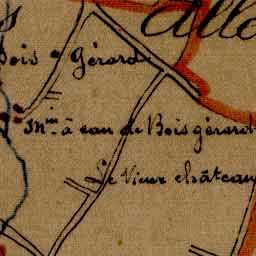 Allo
Bois Gérard
Min à eau de Bois gérard
Le Vieux château